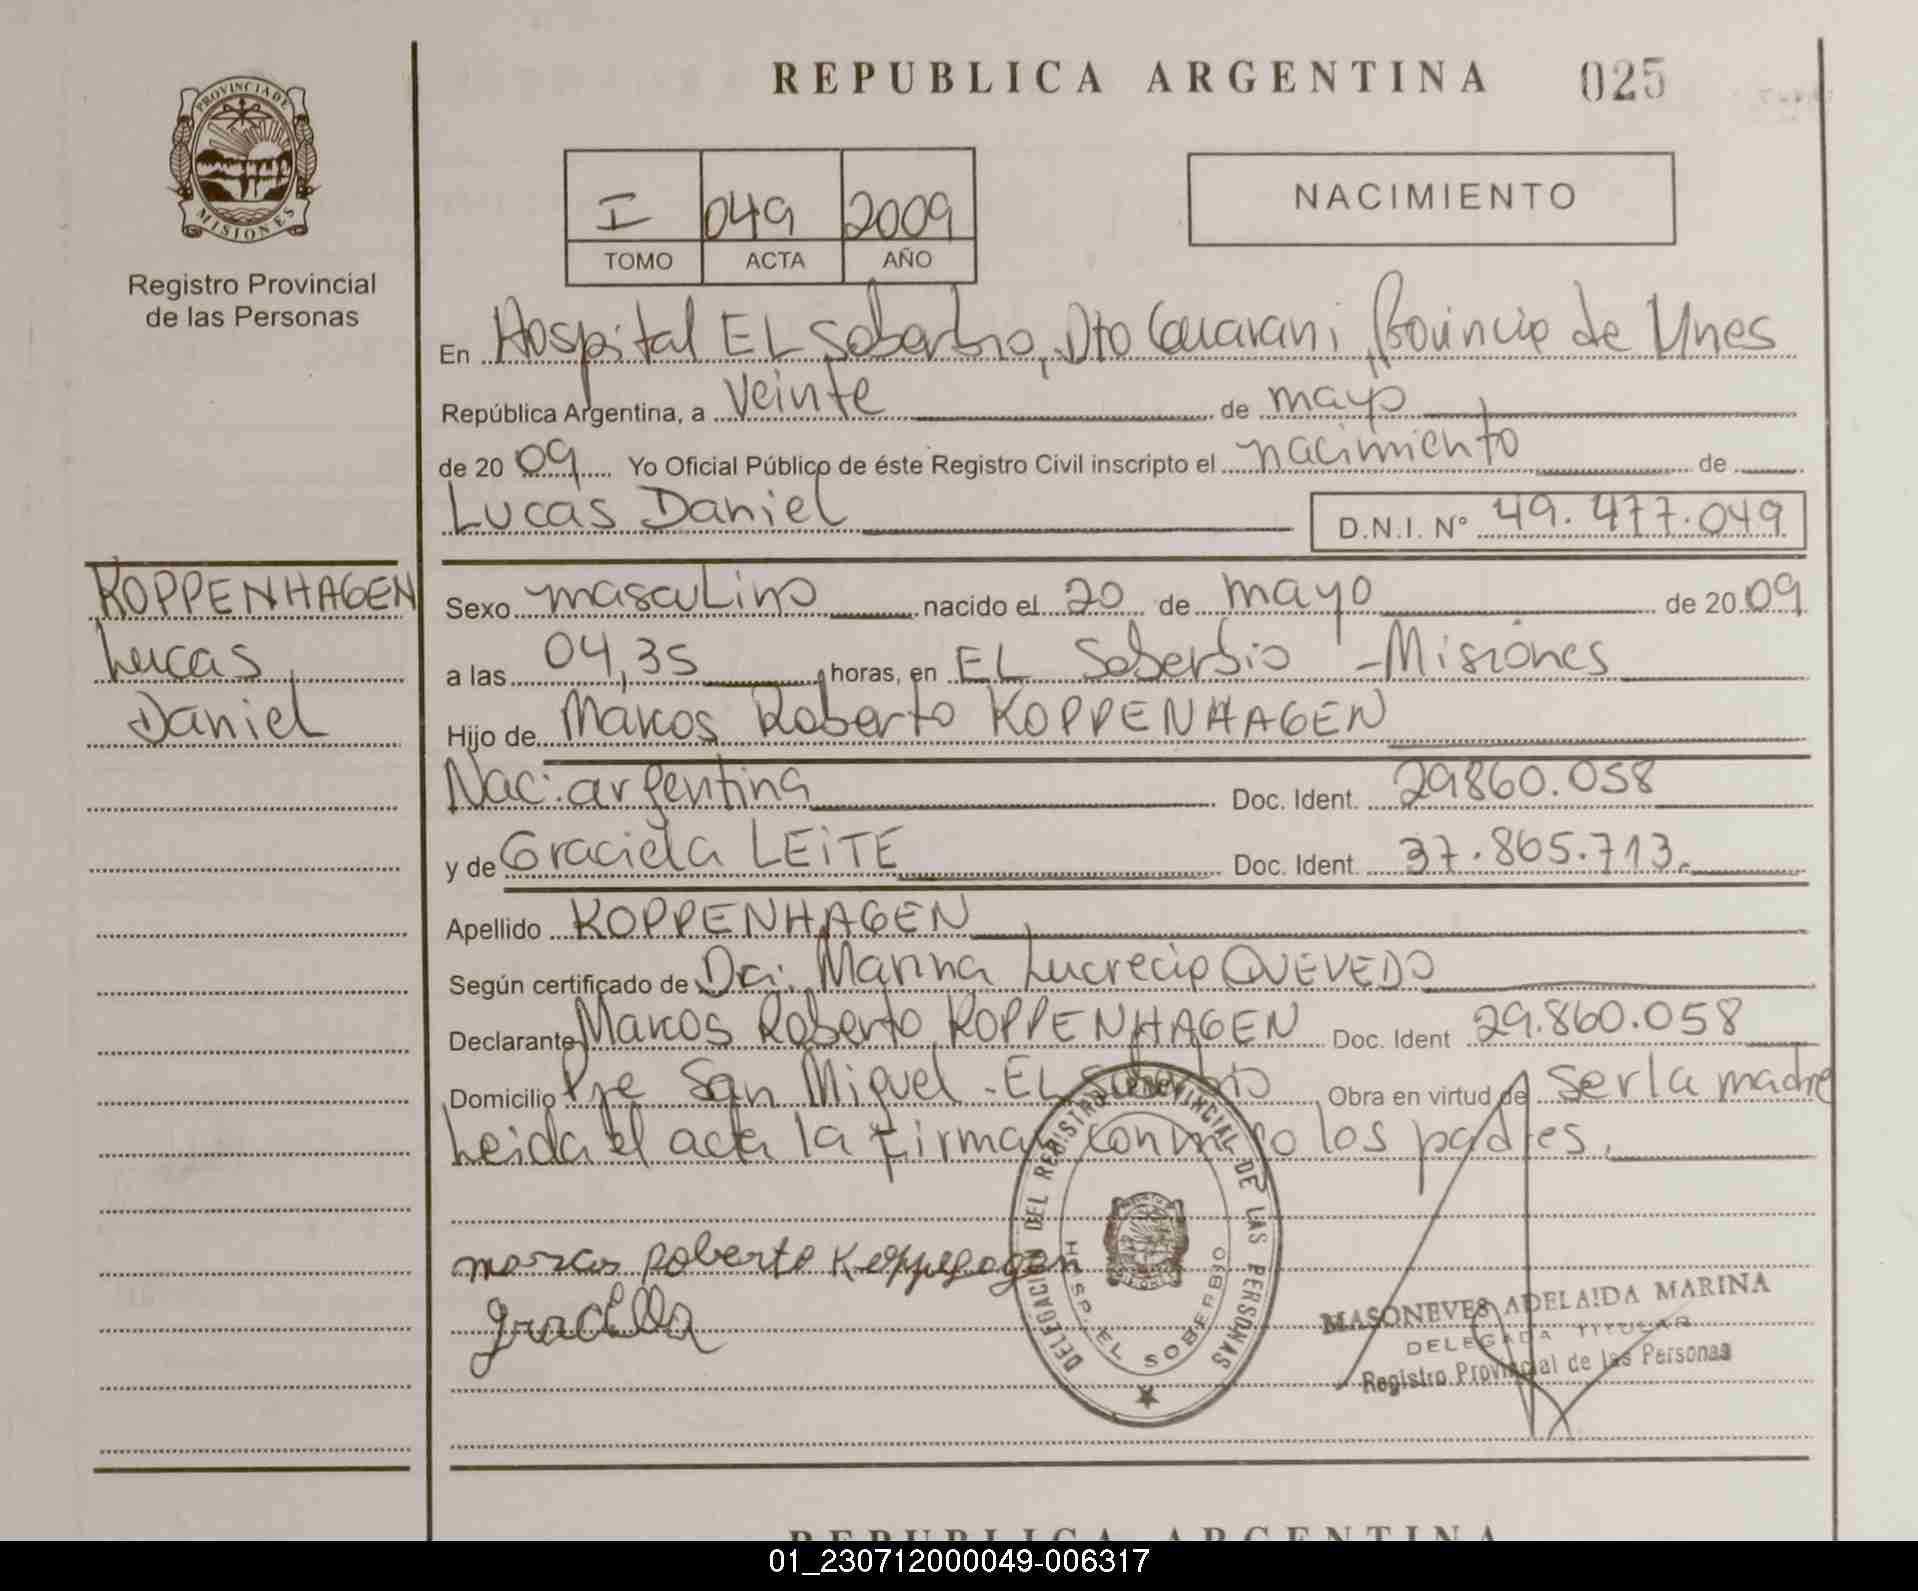 REPUBLICA ARGENTINA 025
PROVINCIA DE
MISIONES
Registro Provincial
de las Personas
I 049 2009
TOMO ACTA AÑO
NACIMIENTO
En Hospital EL Soberbio, Dto Guarani, Provincia de Mnes
República Argentina, a veinte de mayo
de 20 09 Yo Oficial Público de éste Registro Civil inscripto el nacimiento de
Lucas Daniel D.N.I. N° 49.477.049
KOPPENHAGEN
Lucas
Daniel
Sexo masculino nacido el 20 de mayo de 20 09
a las 04,35 horas, en EL Soberbio - Misiones
Hijo de Marcos Roberto KOPPENHAGEN
Nac: argentina Doc. Ident. 29860.058
y de Graciela LEITE Doc. Ident. 37.865.713.
Apellido KOPPENHAGEN
Según certificado de Dra. Marina Lucrecia QUEVEDO
Declarante Marcos Roberto KOPPENHAGEN Doc. Ident 29.860.058
Domicilio Pje San Miguel - EL Soberbio Obra en virtud de ser la madre
Leida el acta la firman conmigo los padres.
marcos Roberto
DELEGACION DEL REGISTRO PROVINCIAL DE LAS PERSONAS
HOSP. EL SOBERBIO
MASONEVES ADELAIDA MARINA
DELEGADA TITULAR
Registro Provincial de las Personas
REPUBLICA ARGENTINA
01_230712000049-006317